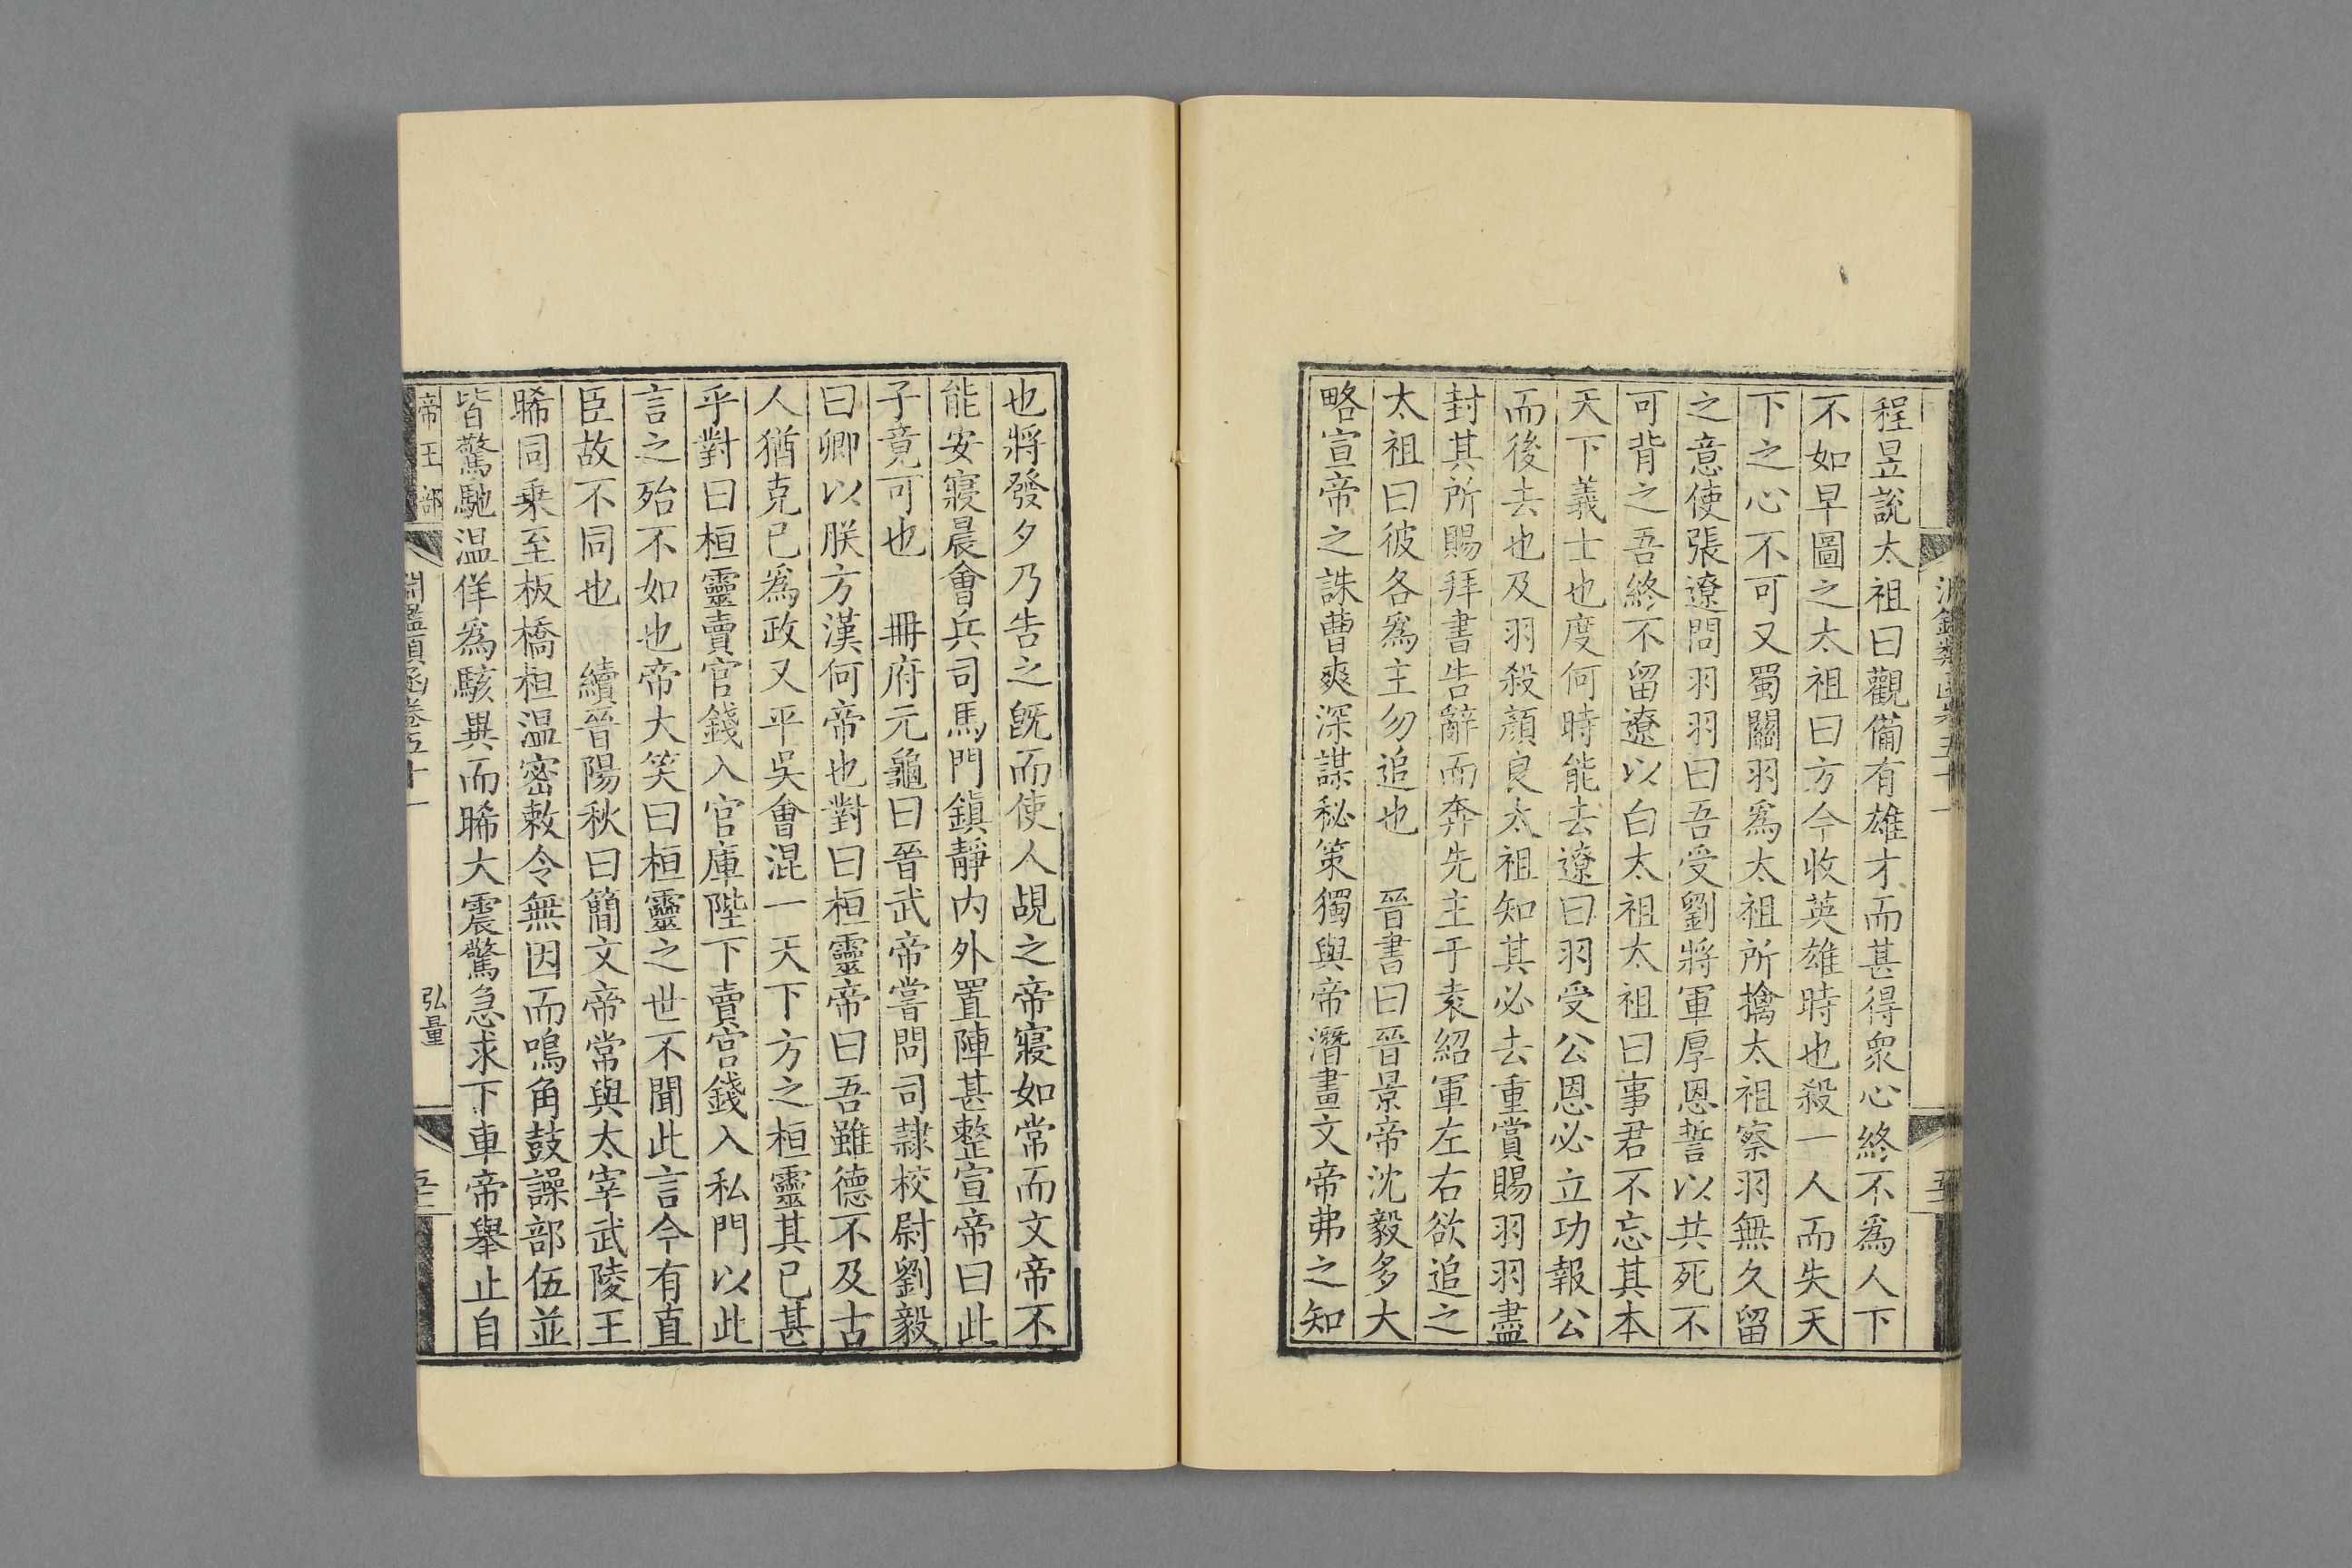 程昱說太祖曰觀備有雄才而甚得衆心終不爲人下
不如早圖之太祖曰方今收英雄時也殺一人而失天
下之心不可又蜀關羽爲太祖所擒太祖察羽無久留
之意使張遼問羽羽曰吾受劉將軍厚恩誓以共死不
可背之吾終不留遼以白太祖太祖曰事君不忘其本
天下義士也度何時能去遼曰羽受公恩必立功報公
而後去也及羽殺顔良太祖知其必去重賞賜羽羽盡
封其所賜拜書告辭而奔先主于袁紹軍左右欲追之
太祖曰彼各爲主勿追也 晉書曰晉景帝沈毅多大
略宣帝之誅曹爽深謀秘策獨與帝潛畫文帝弗之知
也將發夕乃告之旣而使人覘之帝寢如常而文帝不
能安寢晨會兵司馬門鎮靜内外置陣甚整宣帝曰此
子竟可也 冊府元龜曰晉武帝嘗問司隷校尉劉毅
曰卿以朕方漢何帝也對曰桓靈帝曰吾雖德不及古
人猶克已爲政又平吳會混一天下方之桓靈其已甚
乎對曰桓靈賣官錢入官庫陛下賣官錢入私門以此
言之殆不如也帝大笑曰桓靈之世不聞此言今有直
臣故不同也 續晉陽秋曰簡文帝常與太宰武陵王
晞同乘至板橋桓温密敕令無因而鳴角鼓譟部伍並
皆驚馳温佯爲駭異而晞大震驚急求下車帝舉止自
帝王部
淵鑑類函卷五十一
弘量